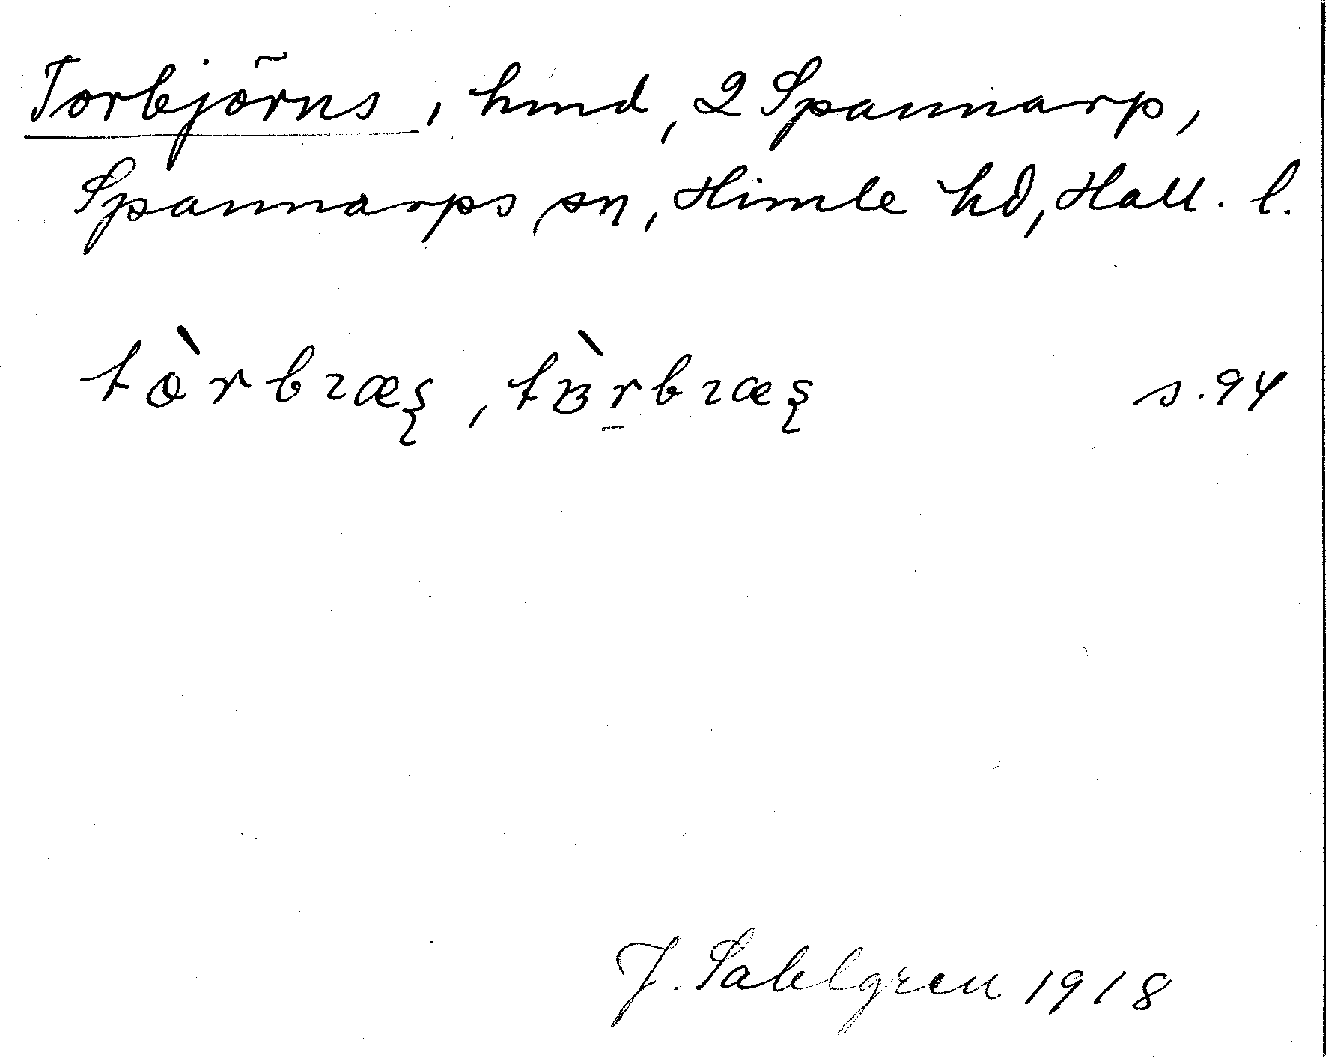 Torbjörns, hmd, 2 Spannarp,
Spannarps sn, Himle hd, Hall. l.
tòrbıæş, tɞ̀r̲bıæş s. 94
J. Sahlgren 1918